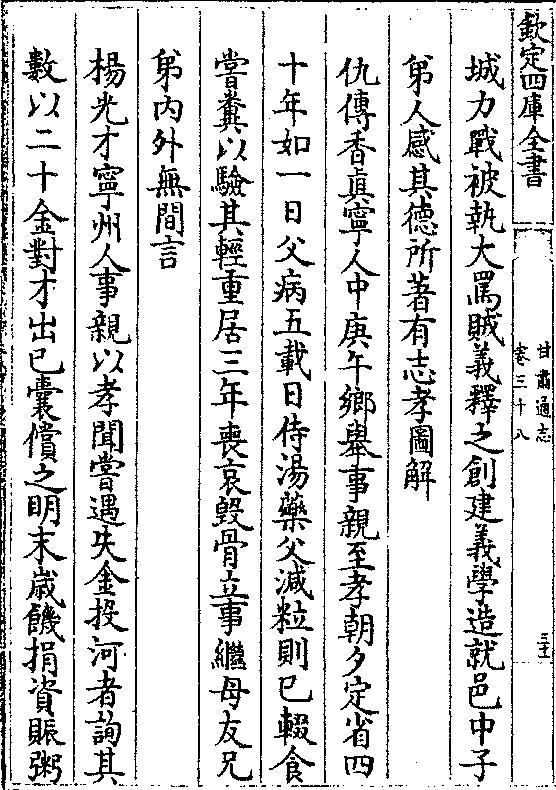 欽定四庫全書
甘肅通志
卷三十八
城力戰被執大罵賊義釋之創建義學造就邑中子
弟人感其德所著有志孝圖解
仇傳香真寧人中庚午鄉舉事親至孝朝夕定省四
十年如一日父病五載日侍湯藥父減粒則已輟食
嘗糞以驗其輕重居三年喪哀毀骨立事繼母友兄
弟內外無間言
楊光才寧州人事親以孝聞嘗遇失金投河者詢其
數以二十金對才出已囊償之明末歲饑捐資賑粥